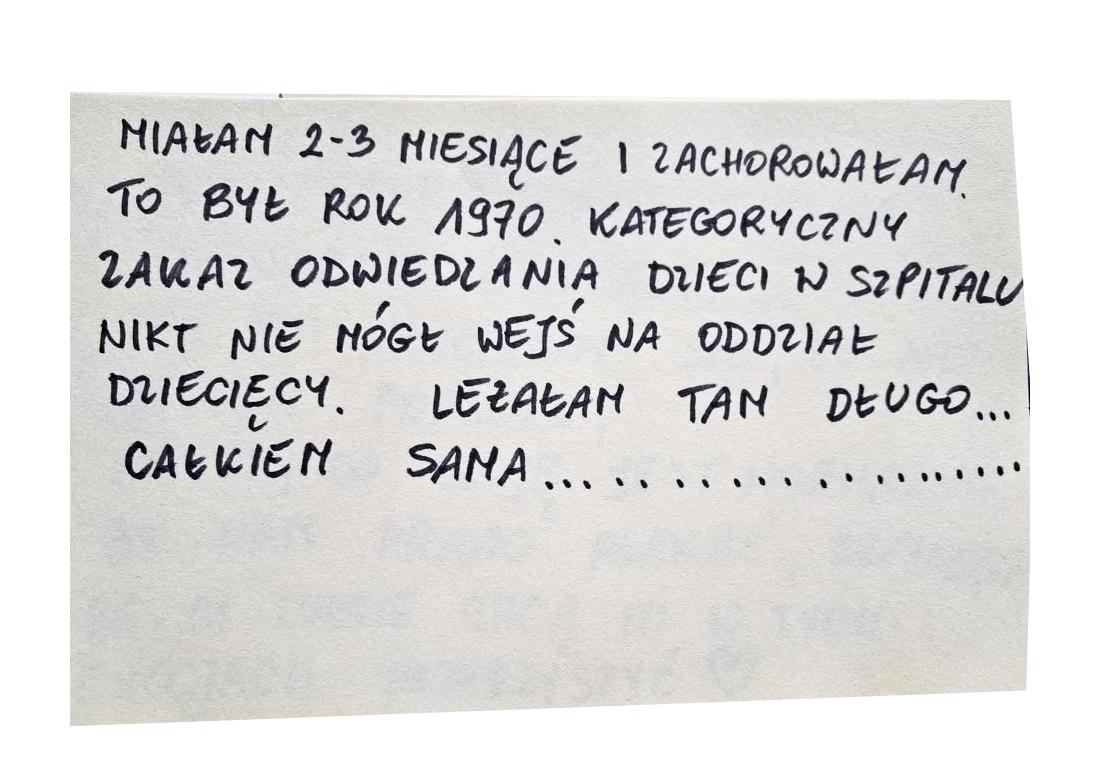 MIAŁAM 2-3 MIESIĄCE I ZACHOROWAŁAM.
TO BYŁ ROK 1970. KATEGORYCZNY
ZAKAZ ODWIEDZANIA DZIECI W SZPITALU
NIKT NIE MÓGŁ WEJŚ NA ODDZIAŁ
DZIECIĘCY. LEŻAŁAM TAM DŁUGO...
CAŁKIEM SAMA... . . . . . . . . . . . . . . . . . .